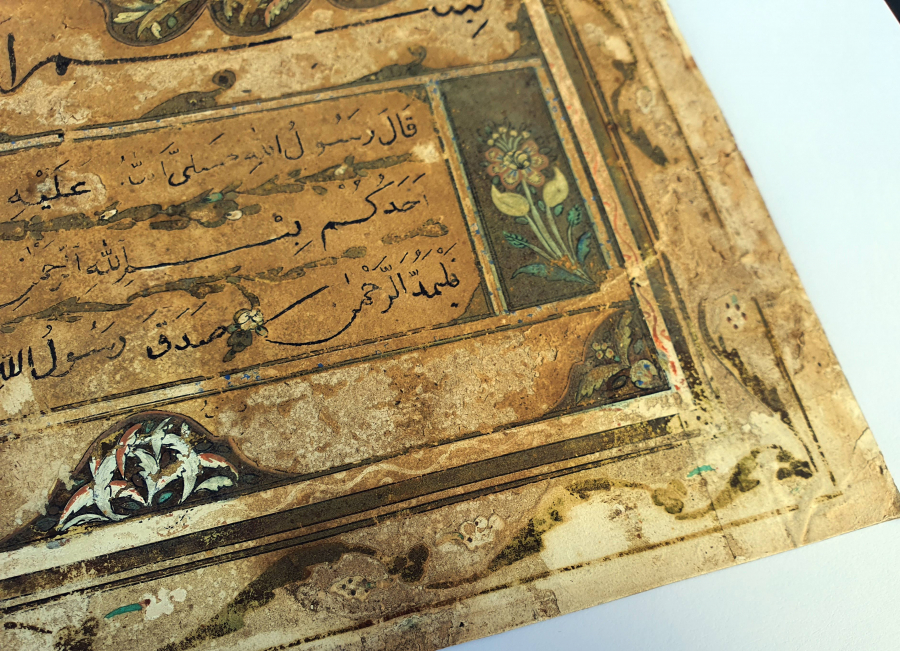 بسم
قَالَ رَسُولُ اللهِ صَلَّى اللهُ عَلَيْهِ
اَحَدُكُمْ بِسْمِ اللهِ الرَّحْمٰن
فَلْيَمُدَّ الرَّحْمٰنَ صَدَقَ رَسُولُ الله